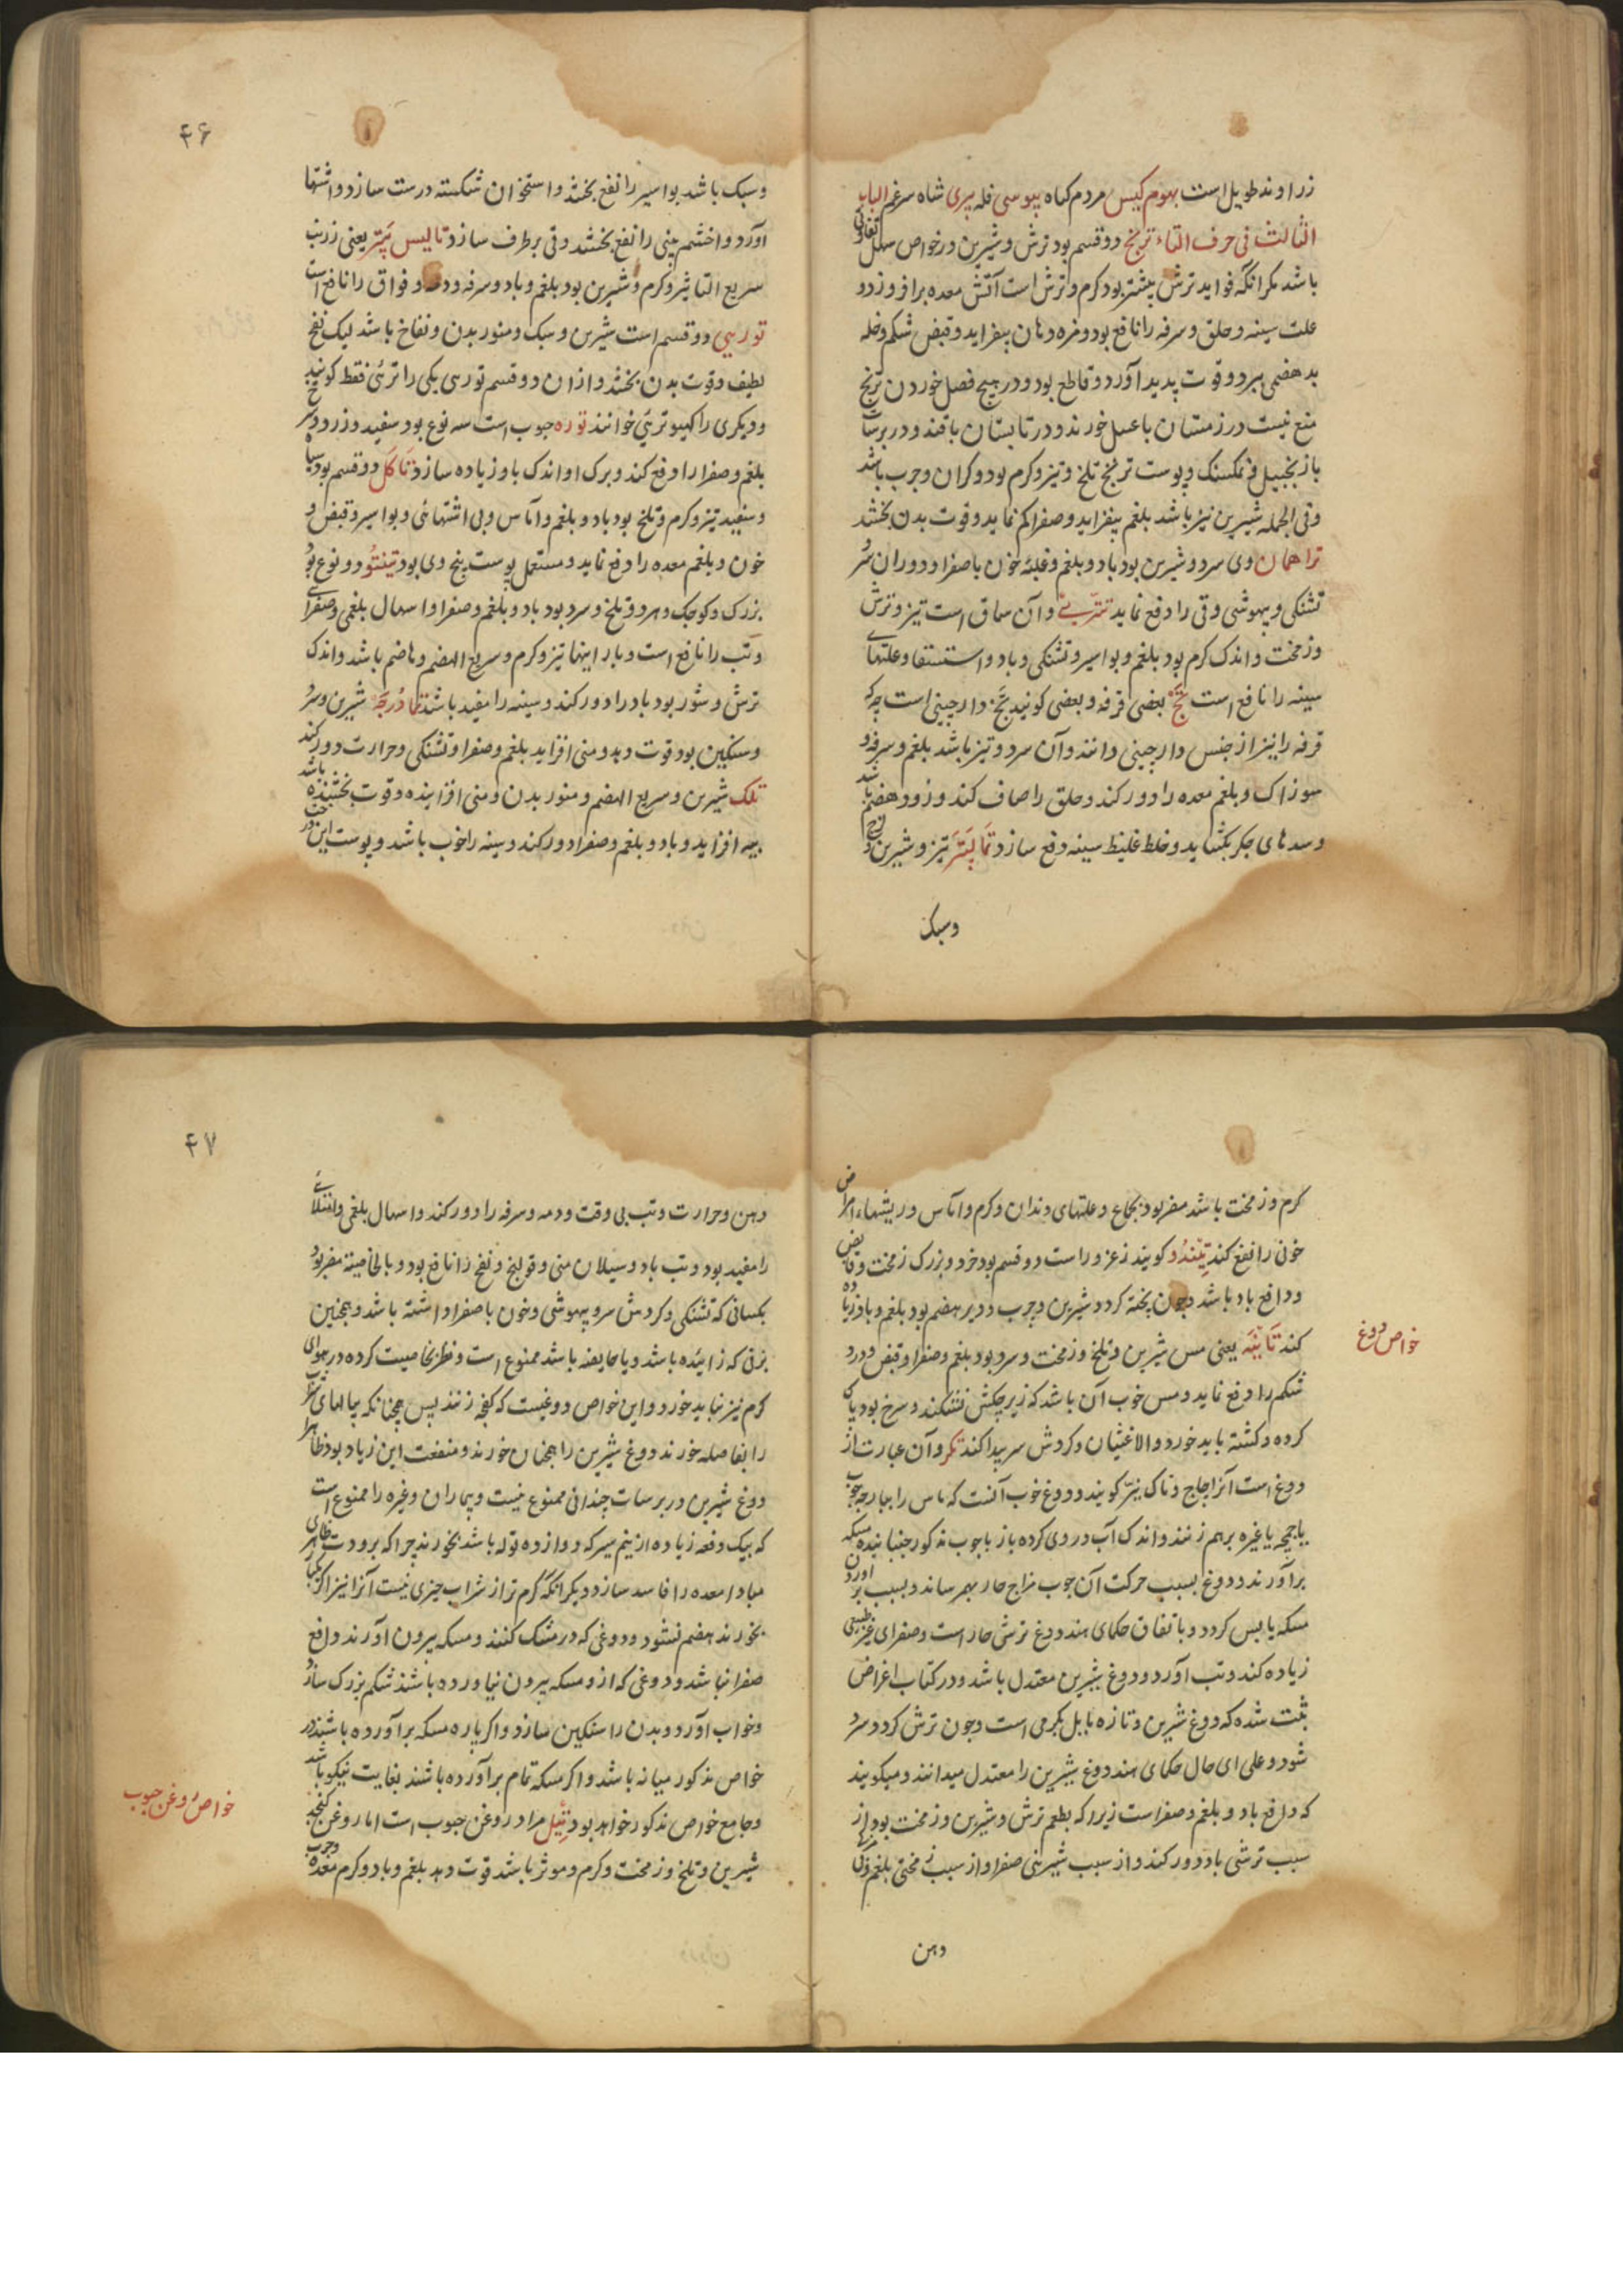 زراوند طویل است بهوم کیس مردم کیاه بیوسی فله بیری شاه سرغم الباب
الثالث فی حرف التاء ترنج دو قسم بود ترش و شیرین در خواص سهل تفاوتی
باشد مکر انکه فواید ترش بیشتر بود کرم و ترش است آتش معده برافروزد و
علت سینه و حلق و سرفه را نافع بود و مزه دهان بیفزاید و قبض شکم و خله
بدهضمی ببرد و قوت پدید آورد و قاطع بود و در هیچ فصل خوردن ترنج
منع نیست در زمستان با عسل خورند و در تابستان با قند و در برسات
با زنجبیل و نمکسنک و پوست ترنج تلخ و تیز و کرم بود و کران و چرب باشد
و فی الجمله شیرین نیز باشد بلغم بیفزاید و صفرا کم نماید و قوت بدن بخشد
تراهمان وی سرد و شیرین بود باد و بلغم و غلبه خون با صفرا و دوران سر
تشنکی و بیهوشی و قی را دفع نماید تتریی و آن سماق است تیز و ترش
و زمخت و اندک کرم بود بلغم و بواسیر و تشنکی و باد و استسقا و علتهای
سینه را نافع است تج بعضی قرفه و بعضی کویند تج دارچینی است چه که
قرفه را نیز از جنس دارچینی دانند و آن سرد و تیز باشد بلغم و سرفه و
سوزاک و بلغم معده را دور کند و حلق را صاف کند و زود هضم باشد
و سدهای جکر بکشاید و خلط غلیظ سینه دفع سازد تمالپتر تیز و شیرین و
وسبک
۴۶
وسبک باشد بواسیر را نفع بخشد و استخوان شکسته درست سازد و اشتها
آورد و اخشم بینی را نفع بخشد و قی برطرف سازد تالیس پتر یعنی زرنب
سریع التاثیر و کرم و شیرین بود بلغم و باد و سرفه و دمه و فواق را نافع است
توریی دو قسم است شیرین و سبک و منور بدن و نفاخ باشد لیک نفخ
لطیف و قوت بدن بخشد و ازان دو قسم توری یکی را ترئی فقط کویند
و دیکری را کهیو ترئی خوانند توره جوب است سه نوع بود سفید و زرد و سرخ
بلغم و صفرا را دفع کند و برک او اندک باد زیاده سازد تاکل دو قسم بود سیاه
و سفید تیز و کرم و تلخ بود باد و بلغم و آماس و بی اشتهائی و بواسیر و قبض و
خون و بلغم معده را دفع نماید و مستعمل پوست بیخ وی بود تینتو دو نوع بود
بزرک و کوچک و هر دو تلخ و سرد بود باد و بلغم و صفرا و اسهال بلغمی و صفرای
و تب را نافع است و بار اینها تیز و کرم و سریع الهضم و هاضم باشد و اندک
ترش و شور بود باد را دور کند و سینه را مفید باشد تادرجه شیرین و سرد
و سنکین بود قوت دهد و منی افزاید بلغم و صفرا و تشنکی و حرارت دور کند
تلک شیرین و سریع الهضم و منور بدن و منی افزاینده و قوت بخشنده باشد
پیه افزاید و باد و بلغم و صفرا دور کند و سینه را خوب باشد و پوست این درخت
کرم و زمخت باشد مضر بود بجماع و علتهای دندان و کرم و آماس و ریشها و امراض
خونی را نفع کند تیندو کویند زعرور است دو قسم بود خرد و بزرک زمخت و قابض
و دافع باد باشد و چون پخته کردد شیرین و چرب و دیر هضم بود بلغم و باد زیاده
کند تانبه یعنی مس شیرین و تلخ و زمخت و سرد بود بلغم و صفرا و قبض و درد
خواص دوغ
شکم را دفع نماید و مس خوب آن باشد که زیر چکش نشکند و سرخ بود پاک
کرده و کشته باید خورد والا غثیان و کردش سر پیدا کند تکر و آن عبارت از
دوغ است آنرا چاچ و ناک نیز کویند و دوغ خوب آنست که ماس را بپارچه جوب
یا چمچه یا غیره برهم زنند و اندک آب در وی کرده باز با جوب مذکور جنبانیده مسکه
برآورند و دوغ بسبب حرکت آن جوب مزاج حار بهم رساند و بسبب برآوردن
مسکه یابس کردد و باتفاق حکمای هند دوغ ترشی حار است و صفرای غیر طبیعی
زیاده کند و تب آورد و دوغ شیرین معتدل باشد و در کتاب اغراض
ثبت شده که دوغ شیرین و تازه مایل بکرمی است و چون ترش کردد سرد
شود و علی ای حال حکمای هند دوغ شیرین را معتدل میدانند و میکویند
که دافع باد و بلغم و صفراست زیرا که بطعم ترش و شیرین و زمخت بود از
سبب ترشی باد دور کند و از سبب شیرینی صفرا و از سبب زمختی بلغم
دهن
۴۷
دهن و حرارت و تب بی وقت و دمه و سرفه را دور کند و اسهال بلغمی و امتلائی
را مفید بود و تب باد و سیلان منی و قولنج و نفخ را نافع بود و بالخاصیة مضر بود
بکسانی که تشنکی و کردش سر و بیهوشی و خون با صفرا داشته باشد و همچنین
بزنی که زائیده باشد و یا حایضه باشد ممنوع است و نظر بخاصیت کرده در هوای
کرم نیز نباید خورد و این خواص دوغیست که کفچه زنند پس همچنانکه پیالهای شراب
را بفاصله خورند دوغ شیرین را همچنان خورند و منفعت این زیاد بود ظاهرا
دوغ شیرین در برسات چندانی ممنوع نیست و بیماران و غیره را ممنوع است
که بیک دفعه زیاده از نیم سیر که دوازده توله باشد بخورند چرا که برودت ظاهری
مبادا معده را فاسد سازد و دیکر انکه کرم تر از شراب چیزی نیست آنرا نیز اکر یکبار
بخورند هضم نشود و دوغی که در مشک کنند و مسکه بیرون آورند دافع
صفرا نباشد و دوغی که ازو مسکه بیرون نیاورده باشند شکم بزرک سازد
و خواب آورد و بدن را سنکین سازد و اکر پاره مسکه برآورده باشند در
خواص مذکور میانه باشد و اکر مسکه تمام برآورده باشند بغایت نیکو باشد
و جامع خواص مذکور خواهد بود تیل مراد روغن جوب است اما روغن کنجد
خواص روغن جوب
شیرین و تلخ و زمخت و کرم و موثر باشد قوت دهد بلغم و باد و کرم معده